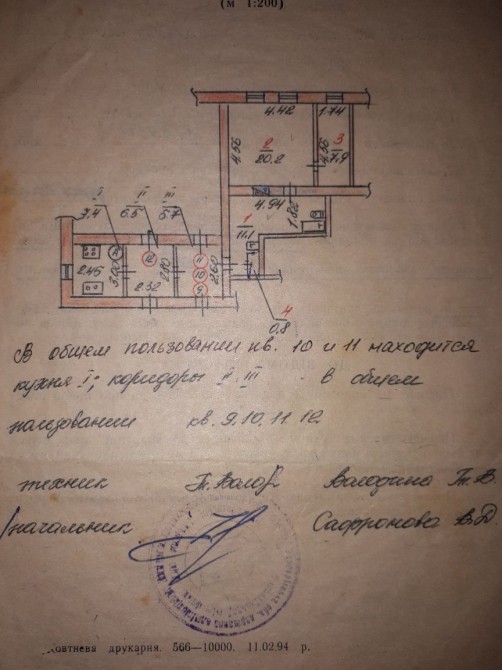 (м 1:200)
4.42 1.74
2 3
4.56 20.2 4.56 7.9
I II III
7.4 6.5 6.7
4.94 1.82
1
11.1
2.45 3.00 12 2.80 11 2.60
10
2.32 9
4
0.8
В общем пользовании кв. 10 и 11 находится
кухня I; коридоры II III - в общем
пользовании кв. 9.10.11.12.
техник Володина Т.В.
/начальник Сафронова В.Д.
овтнева друкарня. 566—10000. 11.02.94 р.